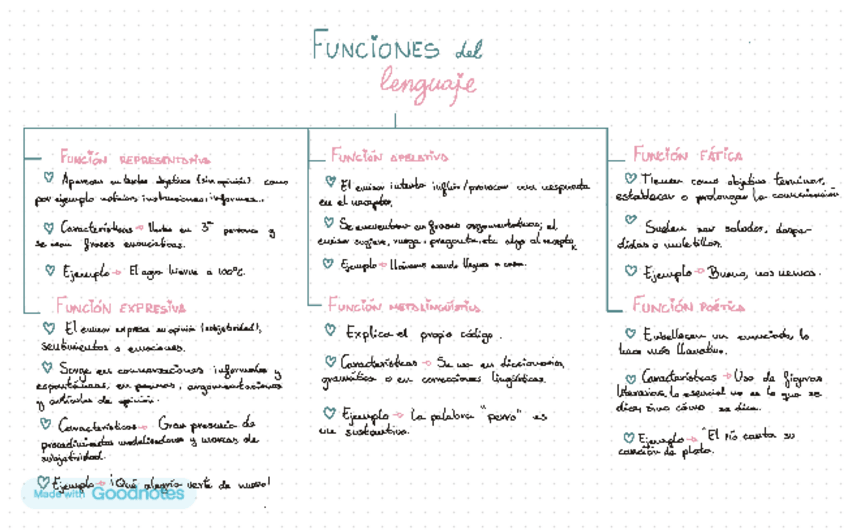 FUNCIONES del
lenguaje
FUNCIÓN REPRESENTATIVA
Aparecen en textos objetivos (sin opinión) como
por ejemplo noticias, instrucciones, informes...
Características → Verbos en 3ª persona y
se usan frases enunciativas.
Ejemplo → El agua hierve a 100ºC.
FUNCIÓN EXPRESIVA
El emisor expresa su opinión (subjetividad),
sentimientos o emociones.
Surge en conversaciones informales y
espontáneas, en poemas, argumentaciones
y artículos de opinión.
Características → Gran presencia de
procedimientos modalizadores y marcas de
subjetividad.
Ejemplo → ¡Qué alegría verte de nuevo!
Made with Goodnotes
FUNCIÓN APELATIVA
El emisor intenta influir/provocar una respuesta
en el receptor.
Se encuentran en frases argumentativas; el
emisor sugiere, ruega, pregunta, etc algo al receptor.
Ejemplo → Llámame cuando llegues a casa.
FUNCIÓN METALINGÜÍSTICA
Explica el propio código.
Características → Se usa en diccionarios,
gramática o en correcciones lingüísticas.
Ejemplo → La palabra "perro" es
un sustantivo.
FUNCIÓN FÁTICA
Tienen como objetivo terminar,
establecer o prolongar la comunicación
Suelen ser saludos, despe-
didas o muletillas.
Ejemplo → Bueno, nos vemos.
FUNCIÓN POÉTICA
Embellecen un enunciado, lo
hace más llamativo.
Características → Uso de figuras
literarias, lo esencial no es lo que se
dice, sino cómo se dice.
Ejemplo → "El río canta su
canción de plata.